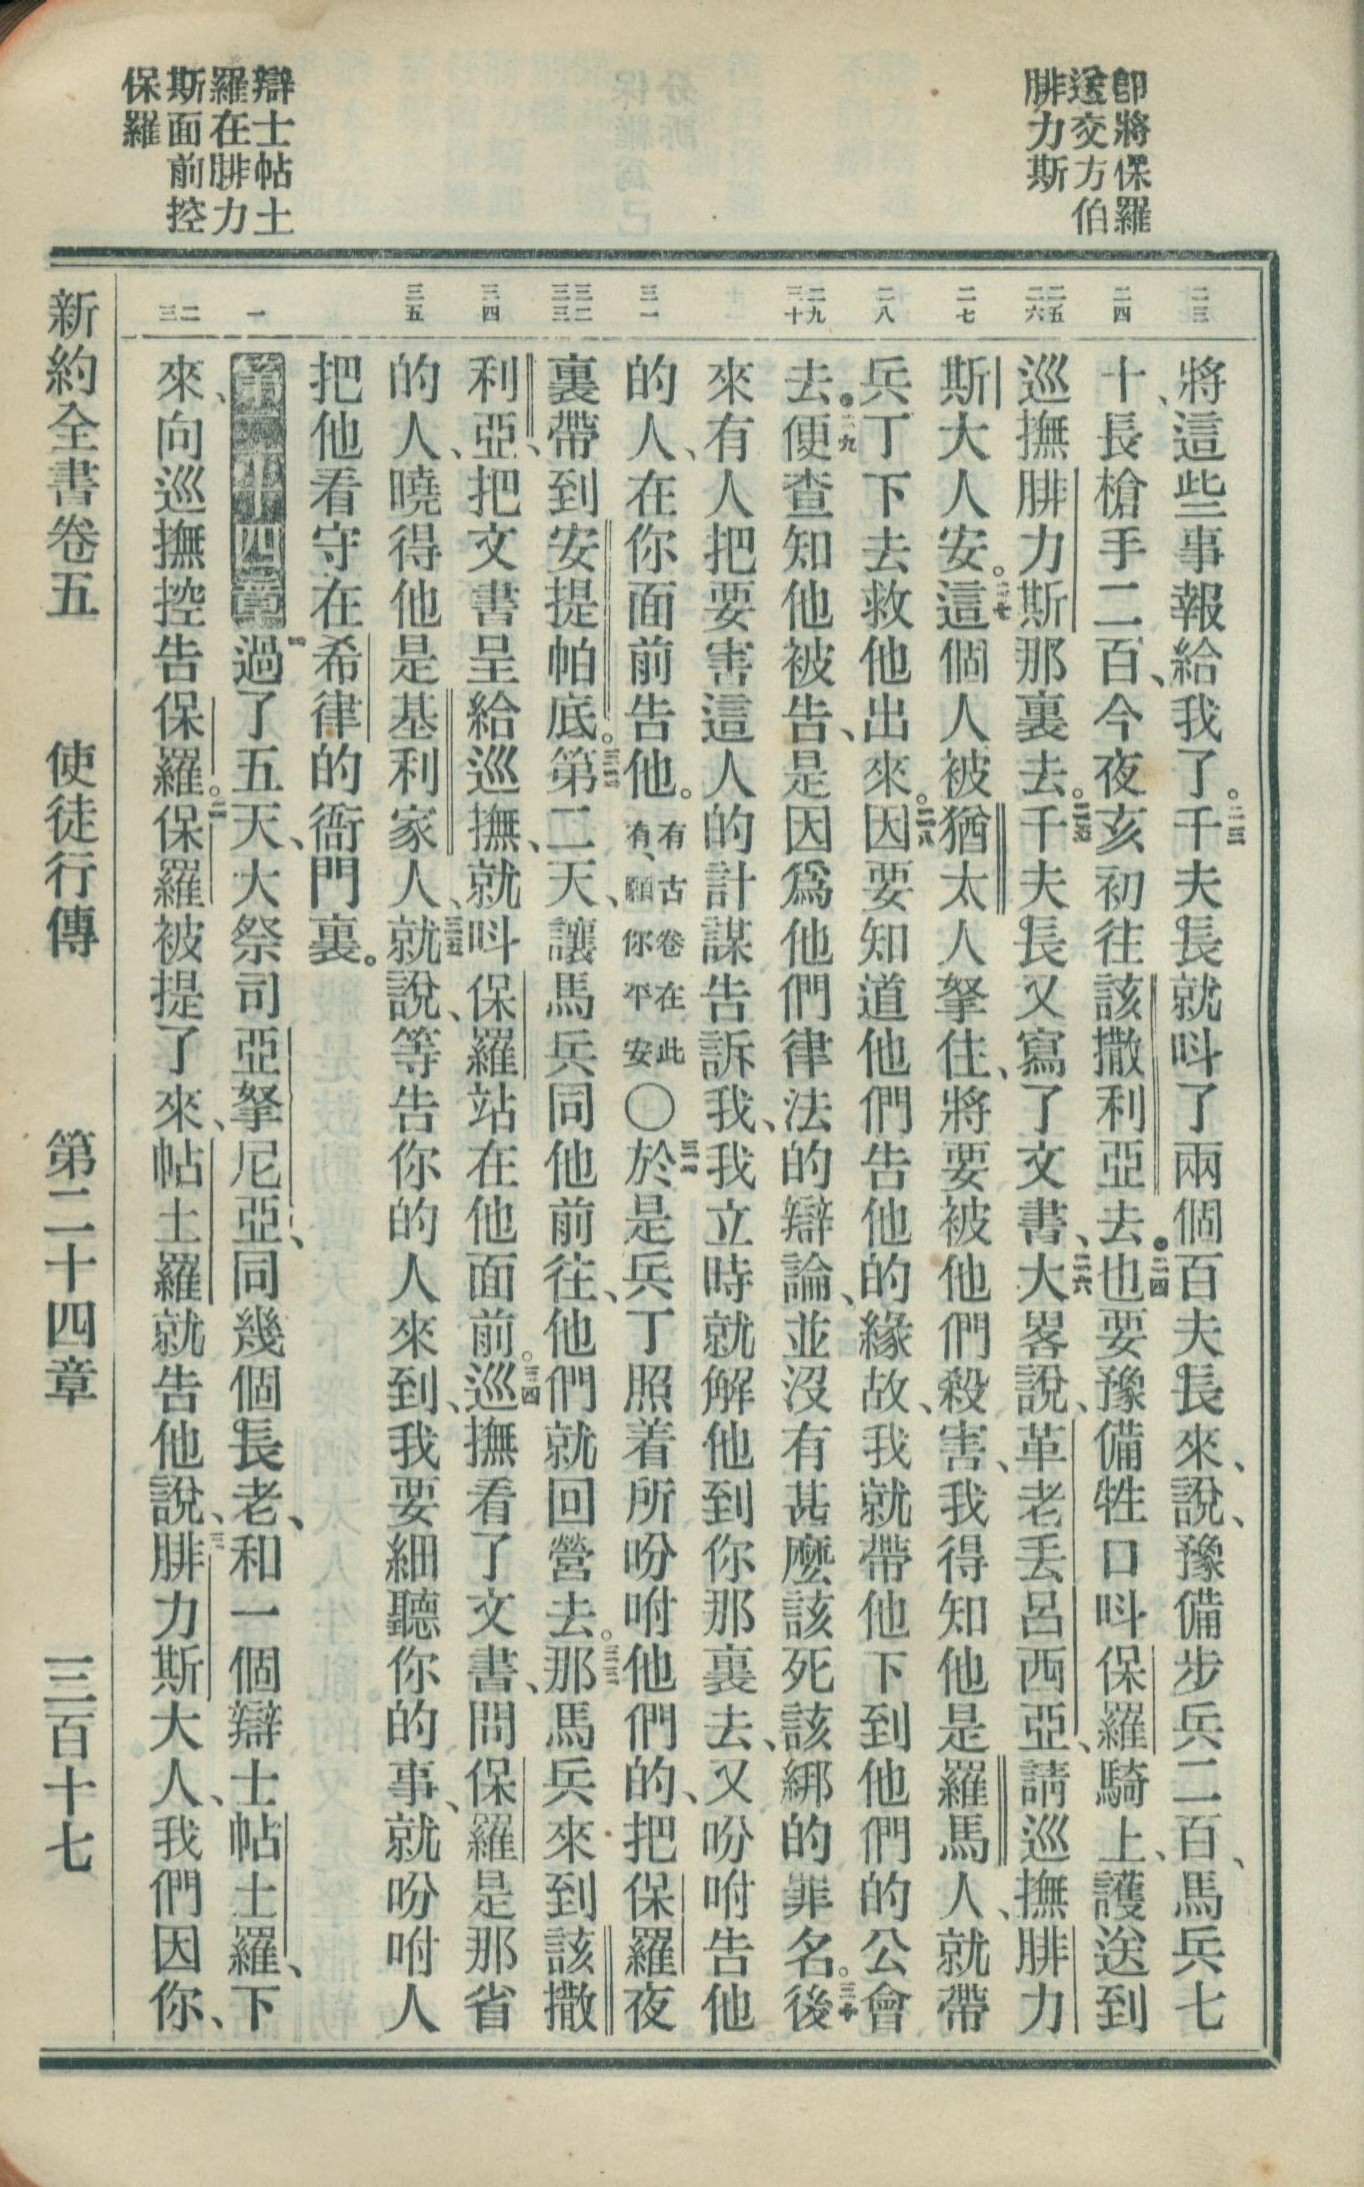 即將保羅
送交方伯
腓力斯
辯士帖土
羅在腓力
斯面前控
保羅
二三
二四
二五
二六
二七
二八
二九
三十
三一
三二
三三
三四
三五
一
二
三
將這些事報給我了。二三千夫長就呌了兩個百夫長來、說、豫備步兵二百、馬兵七
十、長槍手二百、今夜亥初往該撒利亞去。二四也要豫備牲口呌保羅騎上、護送到
巡撫腓力斯那裏去。二五千夫長又寫了文書、二六大畧說、革老丟呂西亞、請巡撫腓力
斯大人安。二七這個人被猶太人拏住、將要被他們殺害、我得知他是羅馬人、就帶
兵丁下去救他出來。二八因要知道他們告他的緣故、我就帶他下到他們的公會
去。二九便查知他被告、是因爲他們律法的辯論、並沒有甚麼該死該綁的罪名。三十後
來有人把要害這人的計謀告訴我、我立時就解他到你那裏去、又吩咐告他
的人、在你面前告他。有古卷在此有、願你平安〇三一於是兵丁照着所吩咐他們的、把保羅夜
裏帶到安提帕底。三二第二天、讓馬兵同他前往、他們就回營去。三三那馬兵來到該撒
利亞、把文書呈給巡撫、就呌保羅站在他面前。三四巡撫看了文書、問保羅是那省
的人、曉得他是基利家人、三五就說、等告你的人來到、我要細聽你的事、就吩咐人
把他看守在希律的衙門裏。
第二十四章 一過了五天、大祭司亞拏尼亞、同幾個長老、和一個辯士帖土羅、下
來、向巡撫控告保羅。二保羅被提了來、帖土羅就告他說、三腓力斯大人、我們因你、
新約全書卷五 使徒行傳 第二十四章 三百十七